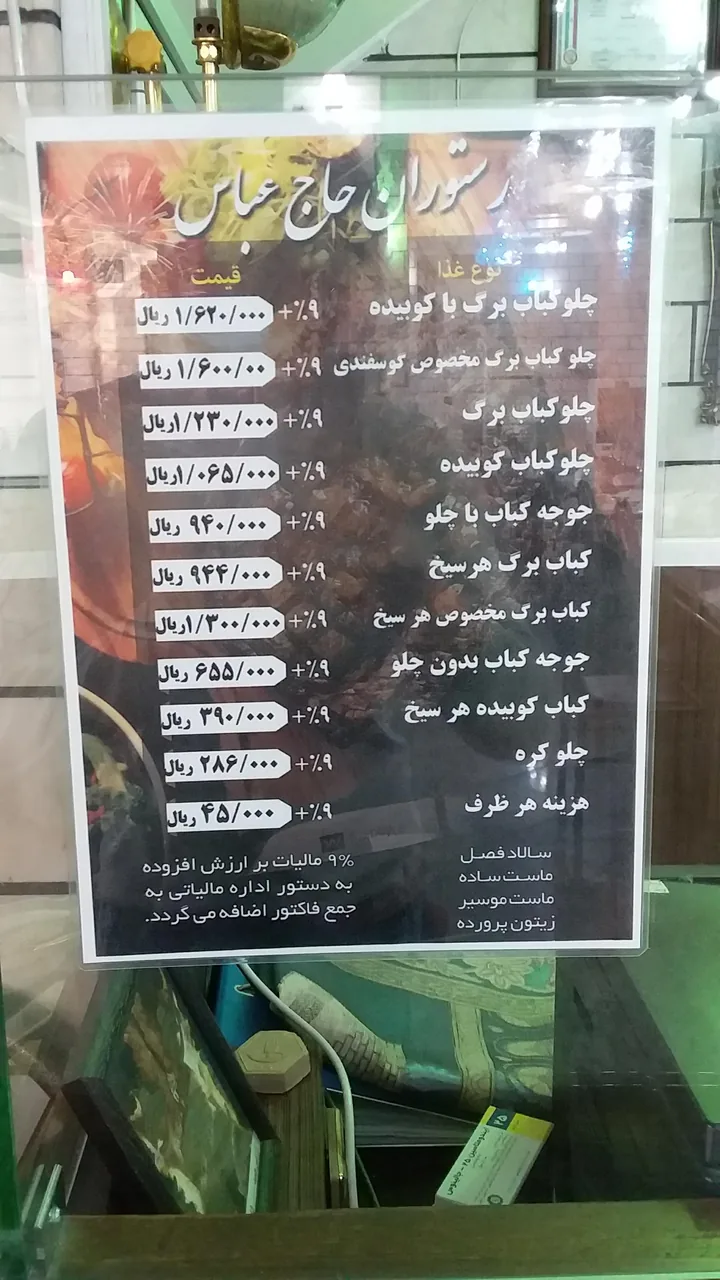 رستوران حاج عباس
نوع غذا قیمت
چلوکباب برگ با کوبیده +٪۹ ۱/۶۲۰/۰۰۰ ریال
چلو کباب برگ مخصوص گوسفندی +٪۹ ۱/۶۰۰/۰۰ ریال
چلوکباب برگ +٪۹ ۱/۲۳۰/۰۰۰ریال
چلوکباب کوبیده +٪۹ ۱/۰۶۵/۰۰۰ریال
جوجه کباب با چلو +٪۹ ۹۴۰/۰۰۰ ریال
کباب برگ هرسیخ +٪۹ ۹۴۴/۰۰۰ ریال
کباب برگ مخصوص هر سیخ +٪۹ ۱/۳۰۰/۰۰۰ریال
جوجه کباب بدون چلو +٪۹ ۶۵۵/۰۰۰ ریال
کباب کوبیده هر سیخ +٪۹ ۳۹۰/۰۰۰ ریال
چلو کره +٪۹ ۲۸۶/۰۰۰ ریال
هزینه هر ظرف +٪۹ ۴۵/۰۰۰ ریال
سالاد فصل
ماست ساده
ماست موسیر
زیتون پرورده
۹% مالیات بر ارزش افزوده
به دستور اداره مالیاتی به
جمع فاکتور اضافه می گردد.